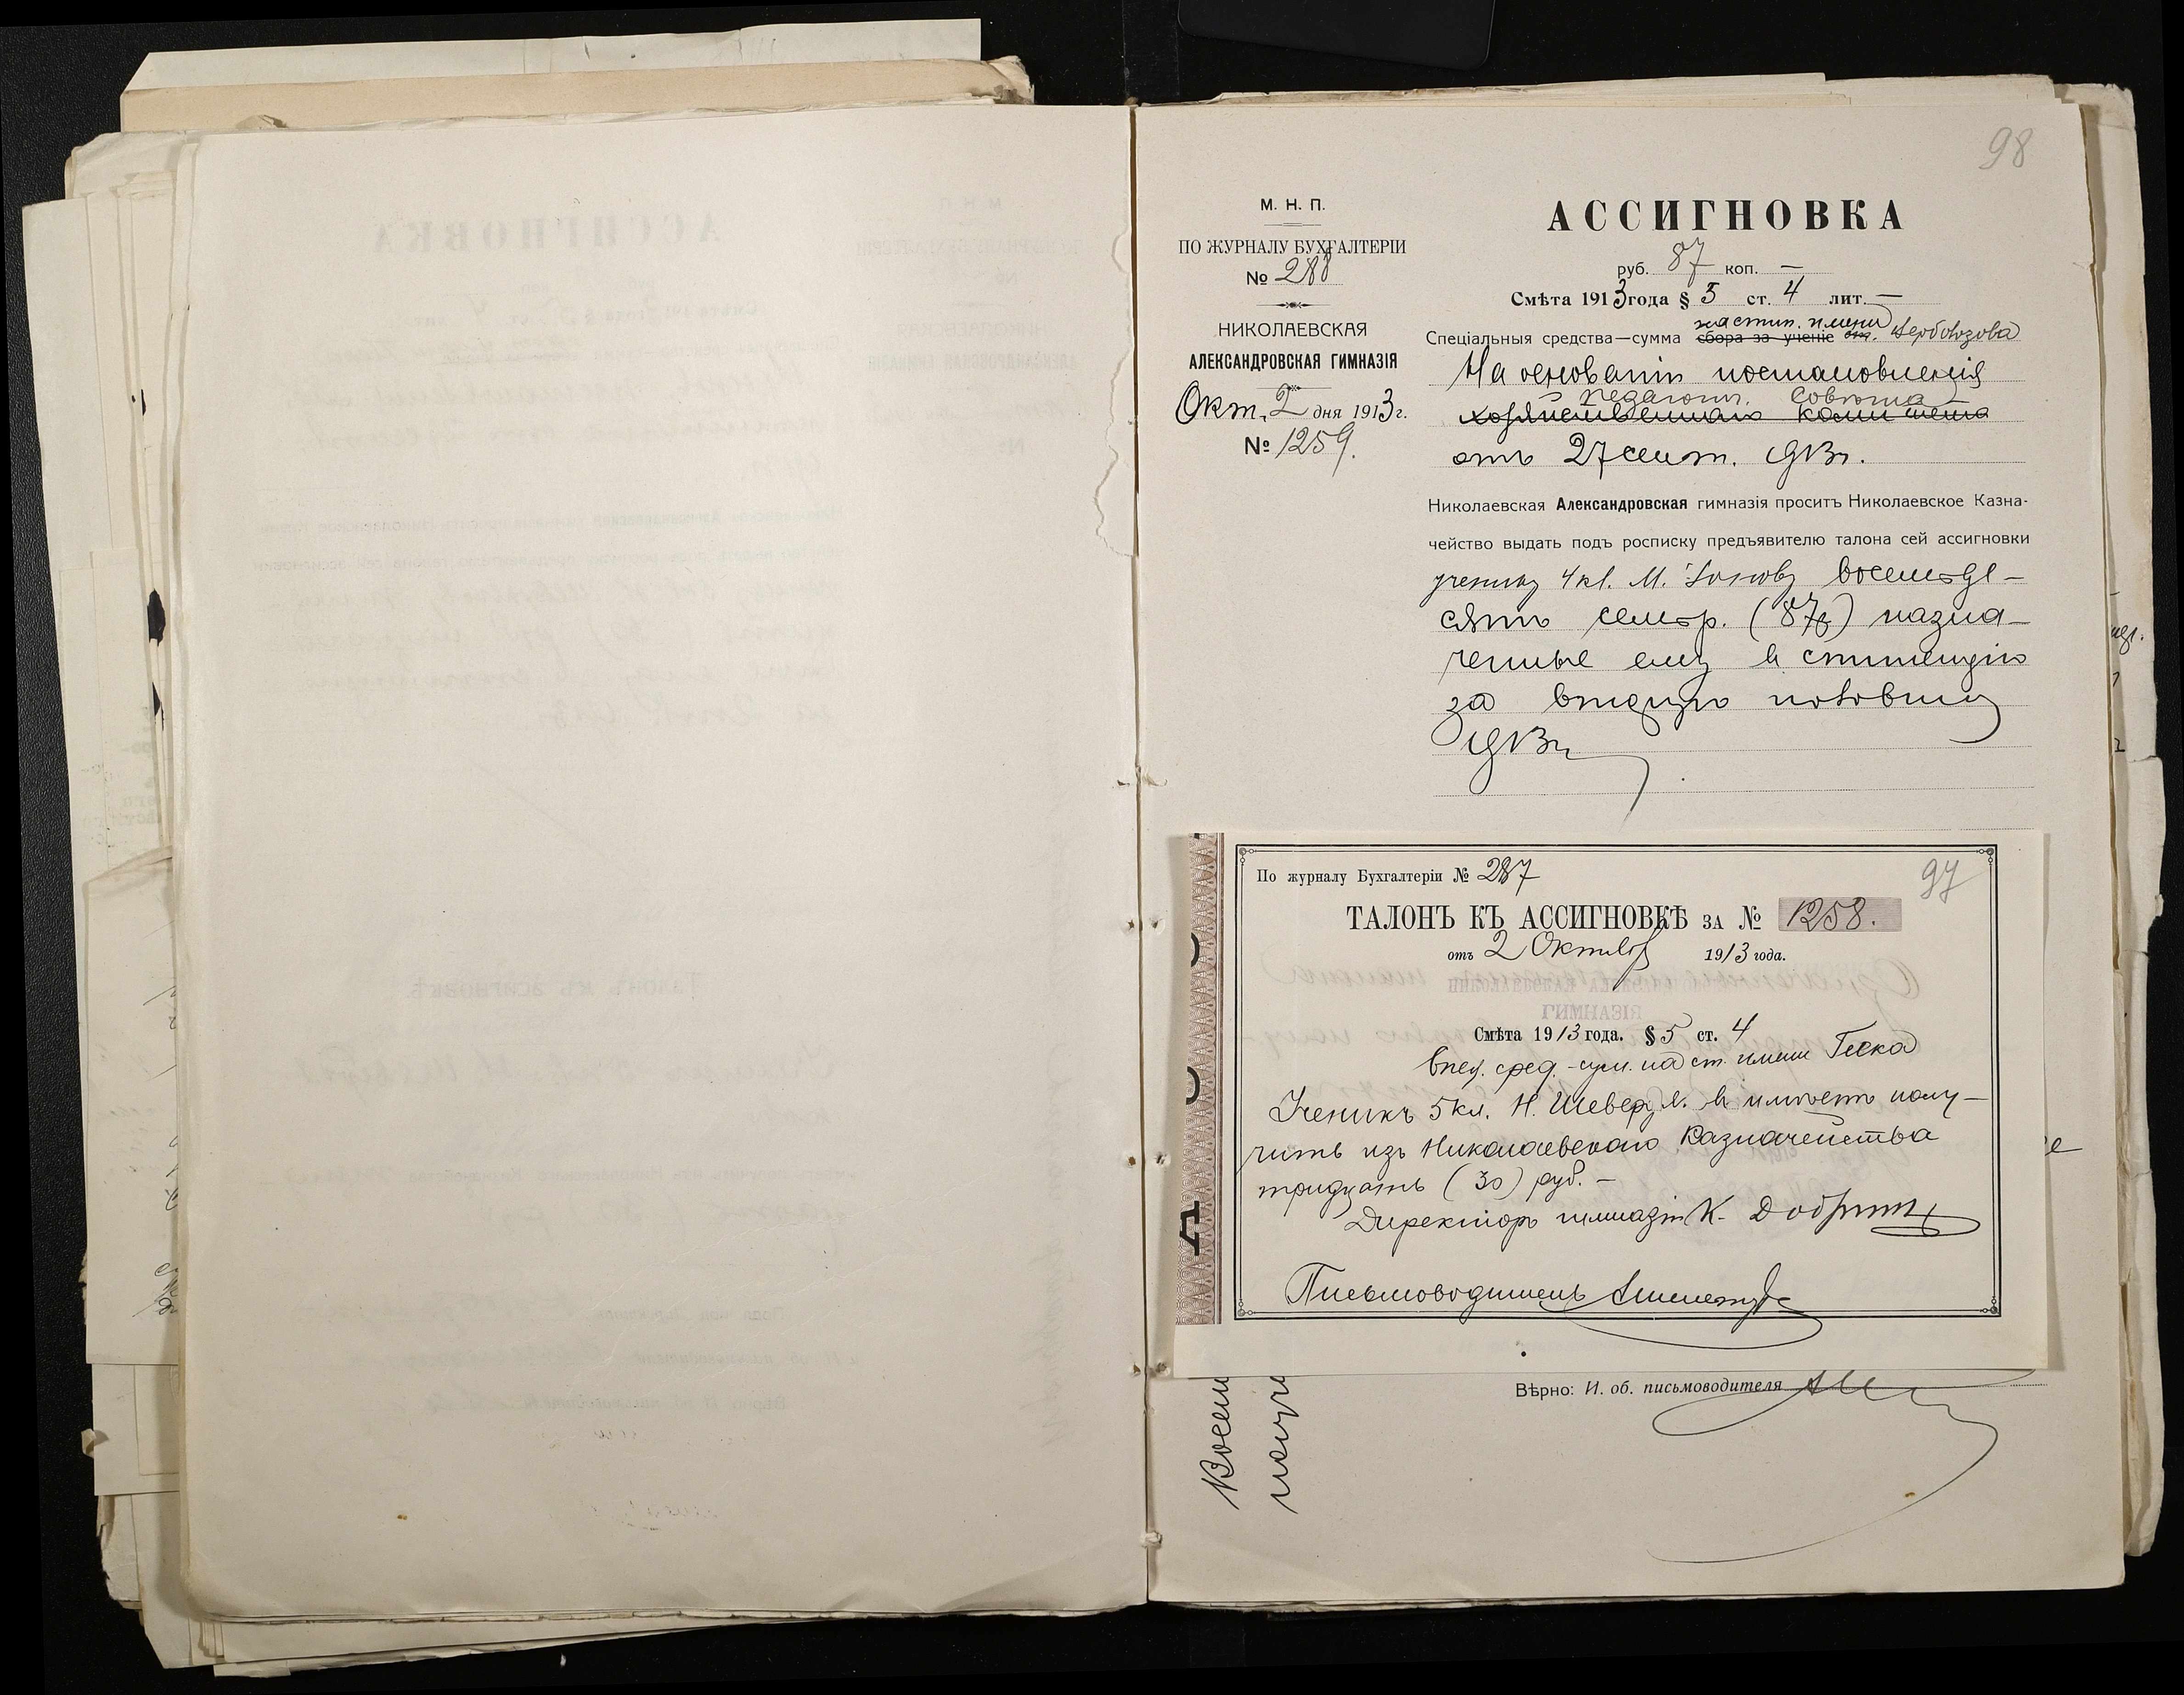 98
М. Н. П.
ПО ЖУРНАЛУ БУХГАЛТЕРІИ
№ 288
НИКОЛАЕВСКАЯ
АЛЕКСАНДРОВСКАЯ ГИМНАЗІЯ
Окт. 2 дня 1913 г.
№ 1259.
АССИГНОВКА
руб. 87 коп. —
Смѣта 1913 года § 5 ст. 4 лит. —
на стип. имени
Спеціальныя средства—сумма сбора за ученіе
На основаніи постановленія
педагогич. Совѣта
хозяйственнаго комитета
отъ 27 сент. 1913 г.
Николаевская Александровская гимназія проситъ Николаевское Казна-
чейство выдать подъ росписку предъявителю талона сей ассигновки
ученику 4 кл. М. восемьде-
сятъ семь р. (87 р) назна-
ченные ему въ стипендію
за вторую половину
1913 г.
97
По журналу Бухгалтеріи № 287
ТАЛОНЪ КЪ АССИГНОВКѢ ЗА № 1258.
отъ 2 Октября 1913 года.
НИКОЛАЕВСКАЯ АЛЕКСАНДРОВСКАЯ
ГИМНАЗІЯ
Смѣта 1913 года. § 5 ст. 4
спец. сред. - сум. на ст. имени Геска
Ученикъ 5 кл. Н. имѣетъ полу-
чить изъ Николаевскаго Казначейства
тридцать (30) руб. —
Директоръ гимназіи К.
Письмоводитель
Вѣрно: И. об. письмоводителя
Восем
получ